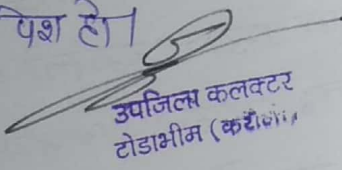 पेश हो।
उपजिला कलक्टर
टोडाभीम (करौली)